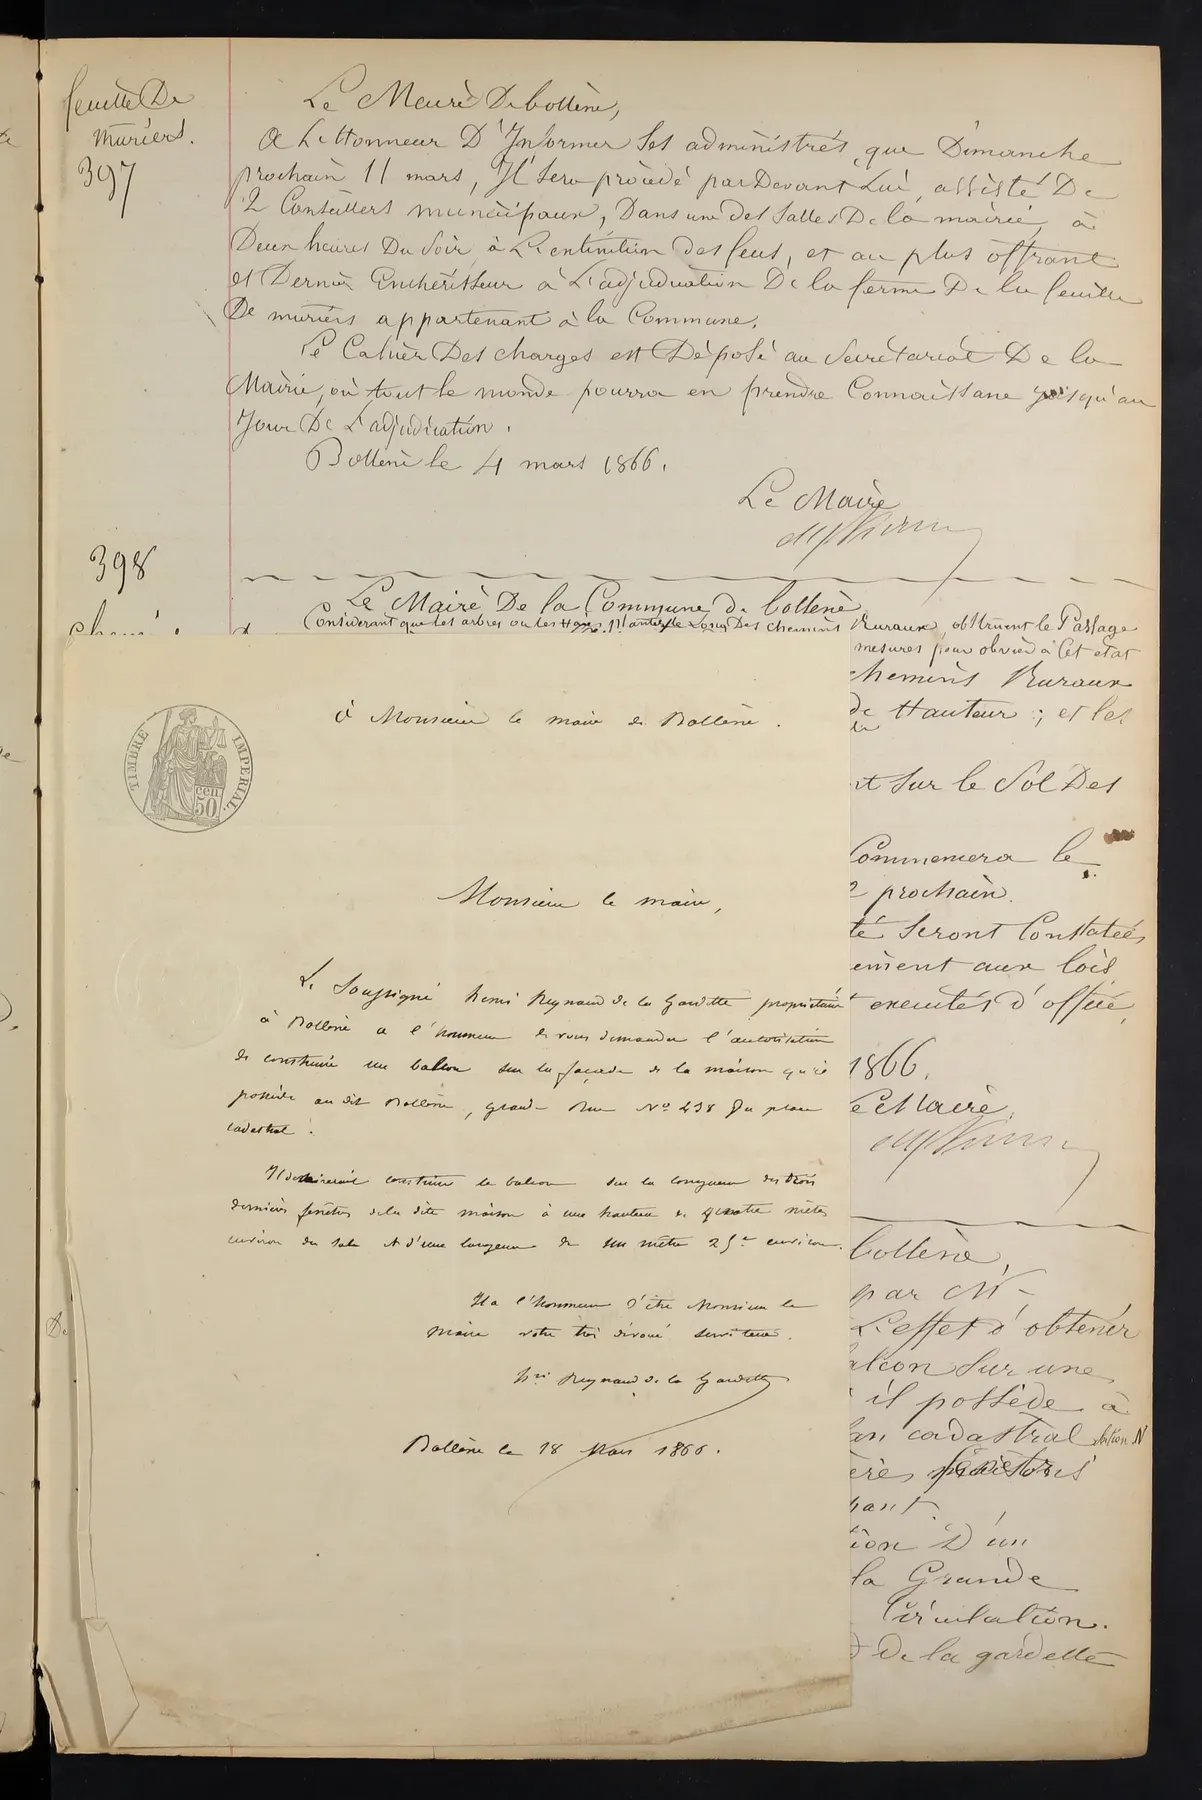 feuille De
muriers.
397
Le Maire De bollène,
A L'Honneur D'Informer Ses administrés, que Dimanche
prochain 11 mars, Il Sera procédé par Devant Lui, assisté De
2 Conseillers municipaux, Dans une des Salles De la mairie, à
Deux heures Du Soir, à L'extinction des feux, et au plus offrant
et Dernier Enchérisseur à L'adjudication De la ferme De la feuille
De muriers appartenant à la Commune.
Le Cahier Des charges est Déposé au Secrétariat De la
Mairie, où tout le monde pourra en prendre Connaissance jusqu'au
Jour De L'adjudication.
Bollène le 4 mars 1866.
Le Maire
398
Le Maire De la Commune de bollène
Considérant que les arbres ou les Haies le Long Des chemins Ruraux, obstruent le Passage
mesures pour obvier à Cet état
chemins Ruraux
de Hauteur ; et les
nt Sur le Sol Des
Commencera le
prochain.
té Seront Constatées
ement aux lois
exécutés d'office,
1866.
Le Maire,
À Monsieur le maire de Bollène.
TIMBRE IMPERIAL
50 cen
Monsieur le maire,
Le Soussigné Henri Reynaud de la Gardette propriétaire
à Bollène a l'honneur de vous demander l'autorisation
de construire un balcon sur la façade de la maison qu'il
possède au dit Bollène, grand Rue No 238 du plan
cadastral.
Il désirerait construire le balcon sur la longueur des trois
dernières fenêtres de la dite maison à une hauteur de quatre mètres
environ du sol et d'une largeur de un mètre 25 c environ.
Il a l'honneur d'être Monsieur le
Maire votre très dévoué serviteur.
Hri Reynaud de la Gardette
Bollène le 18 Mars 1866.
bollène,
par Mr
L'effet d'obtenir
alcon Sur une
il possède à
lan cadastral section N
ères
pant.
tion D'un
la Grande
Circulation.
De la gardette